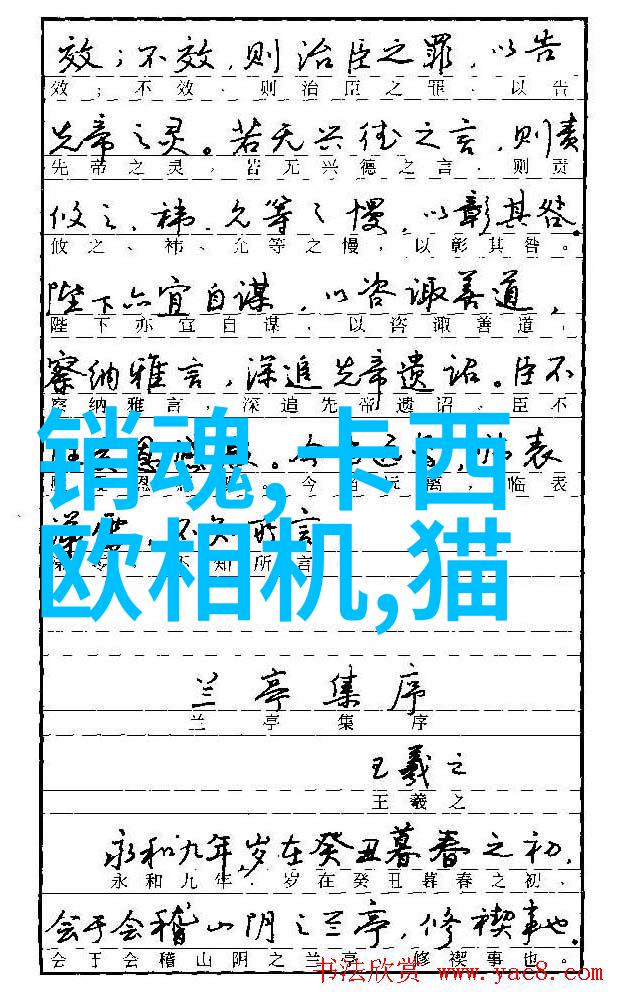 效；不效，则治臣之罪，以告
效；不效、则治臣之罪、以告
先帝之灵。若无兴德之言，则责
先帝之灵，若无兴德之言、则责
攸之、祎、允等之慢，以彰其咎。
攸之、祎、允等之慢，以彰其咎。
陛下亦宜自谋，以咨诹善道，
陛下亦宜自谋，以咨诹善道，
察纳雅言，深追先帝遗诏。臣不
察纳雅言，深追先帝遗诏。臣不
销魂,卡西
欧相机,猫
恩 。今 ，临表
恩 。今 离，临表
，不知所言
不知所言
兰亭集序
兰亭集序
王羲之
王羲之
永和九年，岁在癸丑暮春之初，
永和九年，岁在癸丑暮春之初、
会于会稽山阴之兰亭，修禊事也。
会于会稽山阴之兰亭，修禊事也。
书法欣赏 www.yac8.com